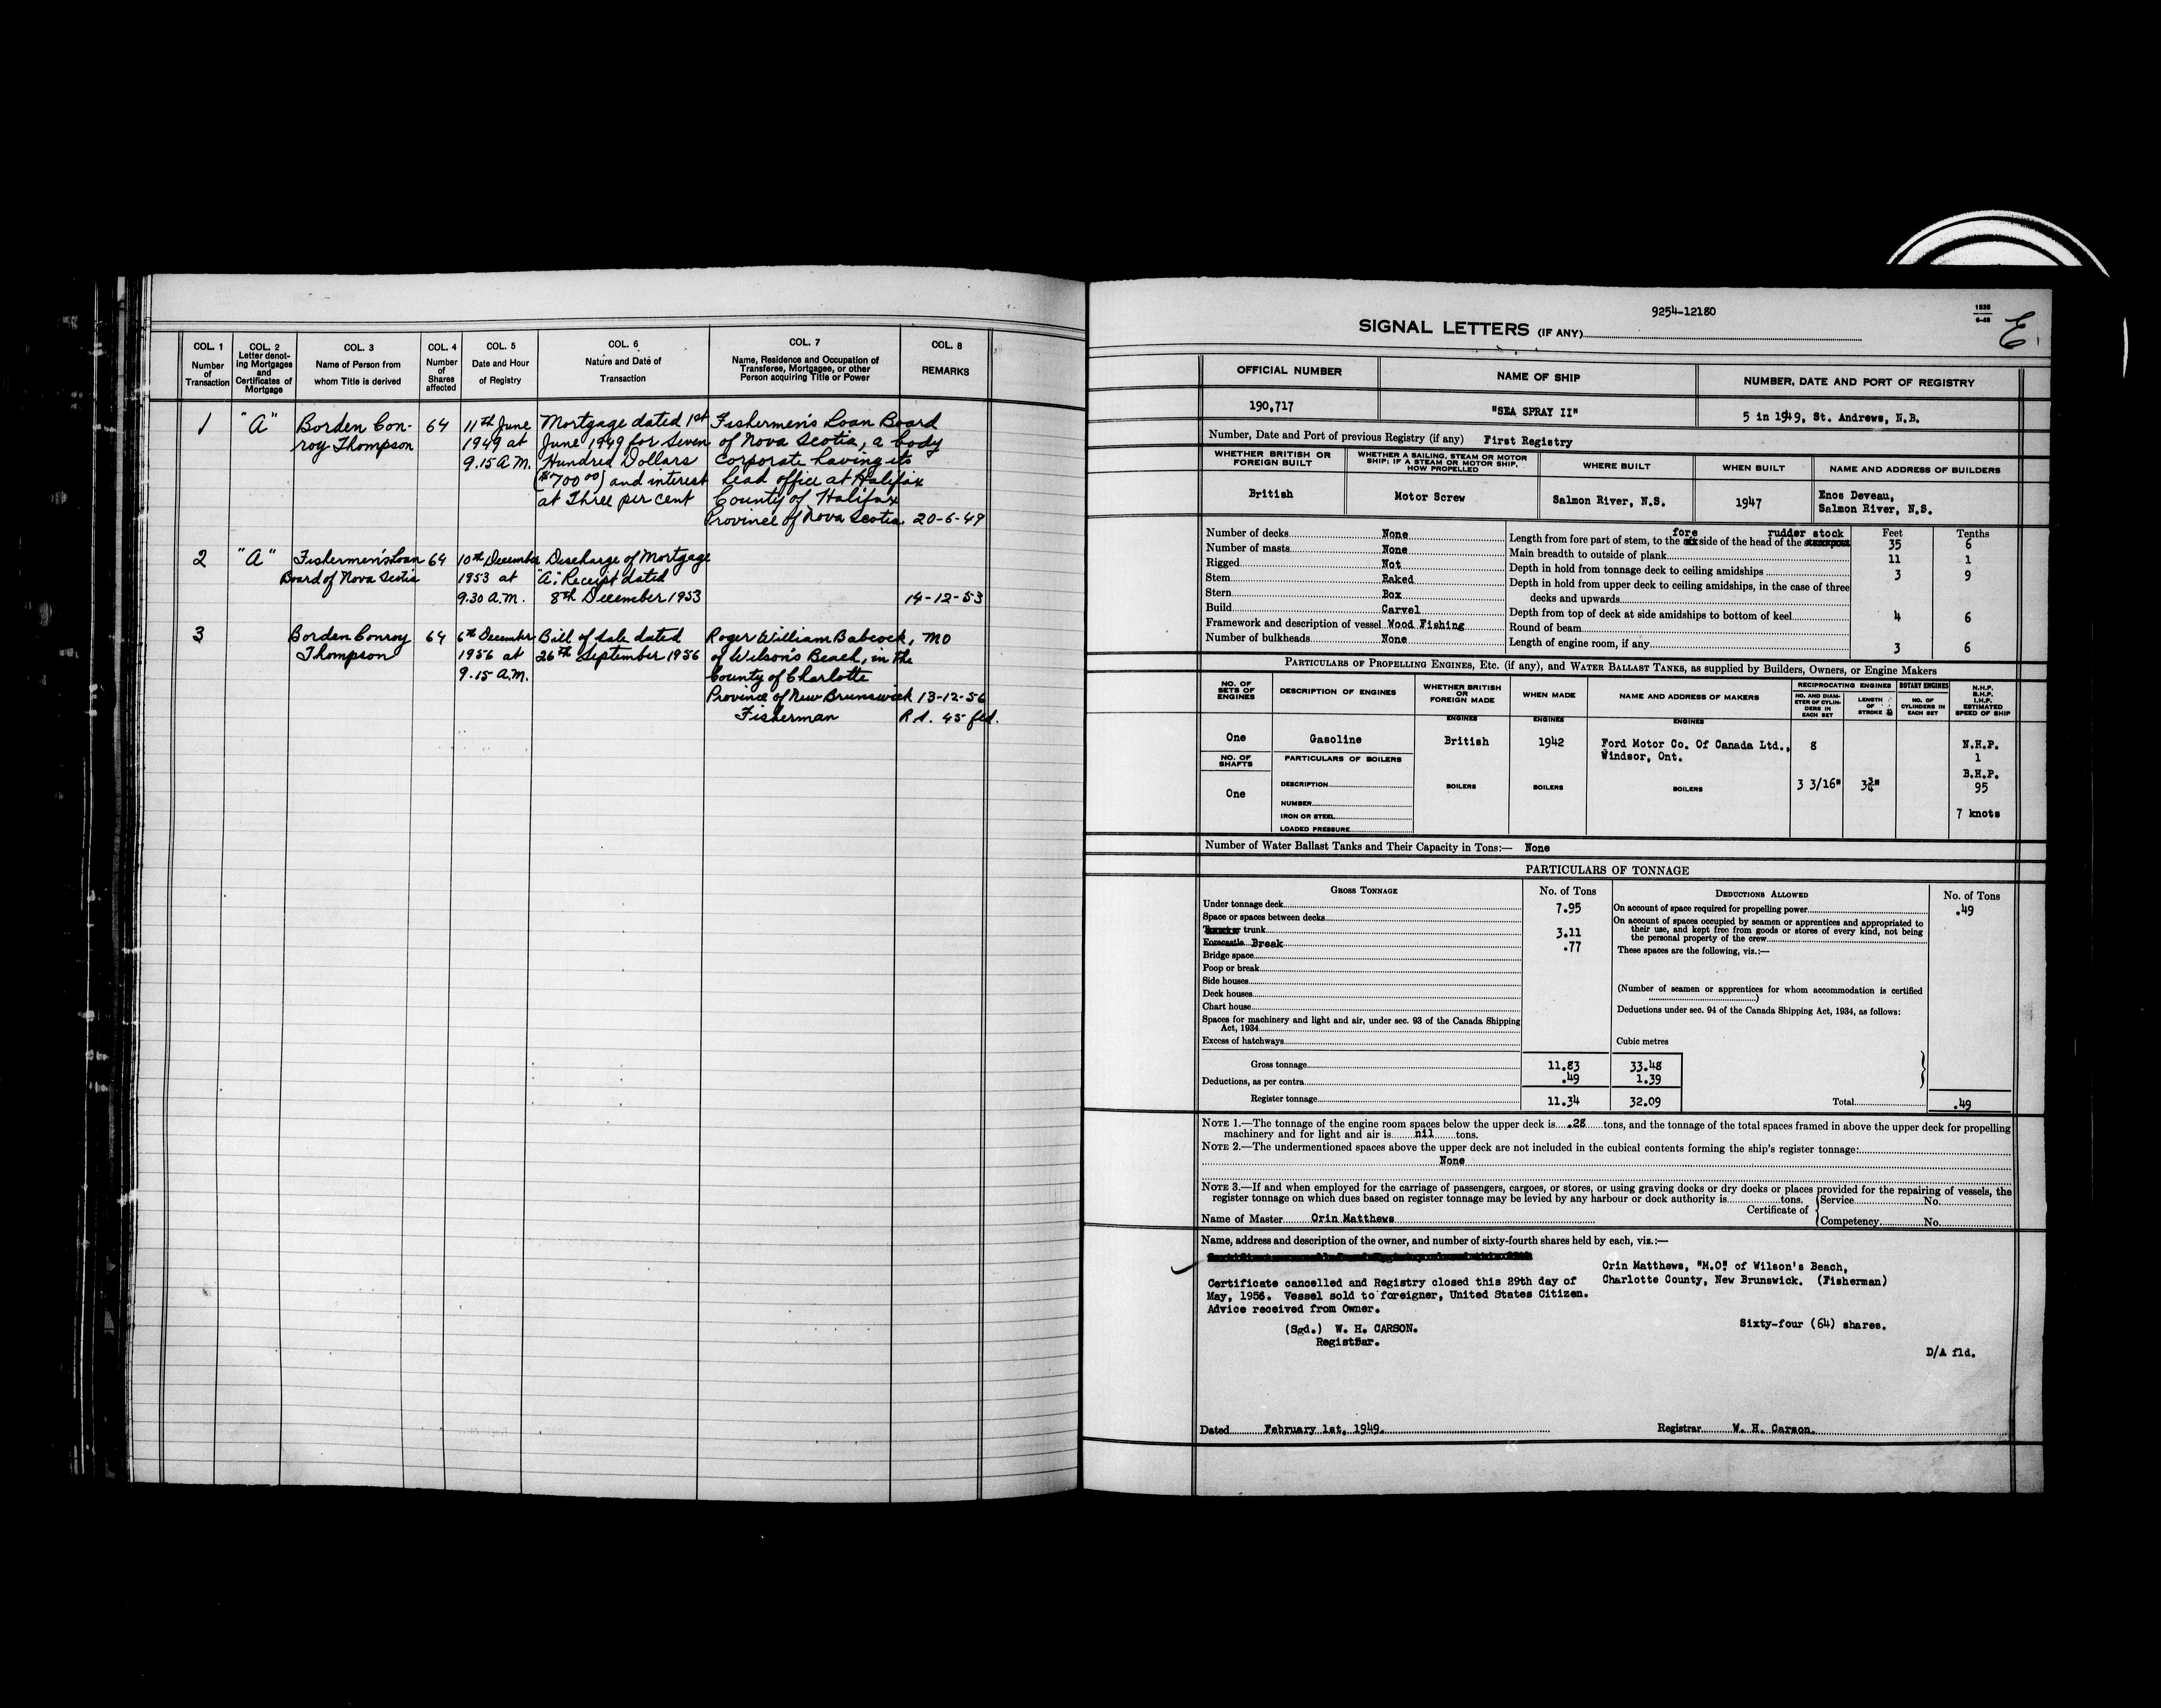 COL. 1
Number
of
Transaction
COL. 2
Letter denot-
ing Mortgages
and
Certificates of
Mortgage
COL. 3
Name of Person from
whom Title is derived
COL. 4
Number
of
Shares
affected
COL. 5
Date and Hour
of Registry
COL. 6
Nature and Date of
Transaction
COL. 7
Name, Residence and Occupation of
Transferee, Mortgagee, or other
Person acquiring Title or Power
COL. 8
REMARKS
1 "A" Borden Con- 64 11th June Mortgage dated 1st Fishermen's Loan Board
roy Thompson 1949 at June 1949 for Seven of Nova Scotia, a body
9.15 A.M. Hundred Dollars corporate having its
($700 00) and interest head office at Halifax
at Three per cent County of Halifax
Province of Nova Scotia. 20-6-49
2 "A" Fishermen's Loan 64 10th December Discharge of Mortgage
Board of Nova Scotia 1953 at "A". Receipt dated
9.30 A.M. 8th December 1953 14-12-53
3 Borden Conroy 64 6th December Bill of Sale dated Roger William Babcock, MO
Thompson 1956 at 26th September 1956 of Wilson's Beach, in the
9.15 A.M. County of Charlotte
Province of New Brunswick 13-12-56
Fisherman R.S. 45 fld.
9254-12180
1938
6-48
E
SIGNAL LETTERS (IF ANY)
OFFICIAL NUMBER
NAME OF SHIP
NUMBER, DATE AND PORT OF REGISTRY
190,717
"SEA SPRAY II"
5 in 1949, St. Andrews, N.B.
Number, Date and Port of previous Registry (if any) First Registry
WHETHER BRITISH OR
FOREIGN BUILT
WHETHER A SAILING, STEAM OR MOTOR
SHIP; IF A STEAM OR MOTOR SHIP,
HOW PROPELLED
WHERE BUILT
WHEN BUILT
NAME AND ADDRESS OF BUILDERS
British
Motor Screw
Salmon River, N.S.
1947
Enos Deveau,
Salmon River, N.S.
Number of decks None
Number of masts None
Rigged Not
Stem Raked
Stern Box
Build Carvel
Framework and description of vessel Wood Fishing
Number of bulkheads None
Feet Tenths
fore rudder stock
Length from fore part of stem, to the side of the head of the 35 6
Main breadth to outside of plank 11 1
Depth in hold from tonnage deck to ceiling amidships 3 9
Depth in hold from upper deck to ceiling amidships, in the case of three
decks and upwards
Depth from top of deck at side amidships to bottom of keel 4 6
Round of beam
Length of engine room, if any 3 6
PARTICULARS OF PROPELLING ENGINES, ETC. (if any), AND WATER BALLAST TANKS, as supplied by Builders, Owners, or Engine Makers
NO. OF
SETS OF
ENGINES
DESCRIPTION OF ENGINES
WHETHER BRITISH
OR
FOREIGN MADE
WHEN MADE
NAME AND ADDRESS OF MAKERS
RECIPROCATING ENGINES
NO. AND DIAM-
ETER OF CYLIN-
DERS IN
EACH SET
LENGTH
OF
STROKE
ROTARY ENGINES
NO. OF
CYLINDERS IN
EACH SET
N.H.P.
B.H.P.
I.H.P.
ESTIMATED
SPEED OF SHIP
ENGINES
ENGINES
ENGINES
One
Gasoline
British
1942
Ford Motor Co. Of Canada Ltd.,
Windsor, Ont.
8
N.H.P.
1
B.H.P.
95
7 knots
NO. OF
SHAFTS
One
PARTICULARS OF BOILERS
DESCRIPTION
NUMBER
IRON OR STEEL
LOADED PRESSURE
BOILERS
BOILERS
BOILERS
3 3/16"
3¾"
Number of Water Ballast Tanks and Their Capacity in Tons:— None
PARTICULARS OF TONNAGE
GROSS TONNAGE
No. of Tons
Under tonnage deck 7.95
Space or spaces between decks
trunk 3.11
Forecastle Break .77
Bridge space
Poop or break
Side houses
Deck houses
Chart house
Spaces for machinery and light and air, under sec. 93 of the Canada Shipping
Act, 1934
Excess of hatchways
Cubic metres
Gross tonnage 11.83 33.48
Deductions, as per contra .49 1.39
Register tonnage 11.34 32.09
DEDUCTIONS ALLOWED
No. of Tons
On account of space required for propelling power .49
On account of spaces occupied by seamen or apprentices and appropriated to
their use, and kept free from goods or stores of every kind, not being
the personal property of the crew
These spaces are the following, viz.:—
(Number of seamen or apprentices for whom accommodation is certified
)
Deductions under sec. 94 of the Canada Shipping Act, 1934, as follows:
Total .49
NOTE 1.—The tonnage of the engine room spaces below the upper deck is .28 tons, and the tonnage of the total spaces framed in above the upper deck for propelling
machinery and for light and air is nil tons.
NOTE 2.—The undermentioned spaces above the upper deck are not included in the cubical contents forming the ship's register tonnage:
None
NOTE 3.—If and when employed for the carriage of passengers, cargoes, or stores, or using graving docks or dry docks or places provided for the repairing of vessels, the
register tonnage on which dues based on register tonnage may be levied by any harbour or dock authority is tons.
Certificate of
Service No.
Competency No.
Name of Master Orin Matthews
Name, address and description of the owner, and number of sixty-fourth shares held by each, viz.:—
Certificate cancelled and Registry closed this 29th day of
May, 1956. Vessel sold to foreigner, United States Citizen.
Advice received from Owner.
(Sgd.) W. H. CARSON.
Registrar.
Orin Matthews, "M.O" of Wilson's Beach,
Charlotte County, New Brunswick. (Fisherman)
Sixty-four (64) shares.
D/A fld.
Dated February 1st, 1949.
Registrar W. H. Carson.